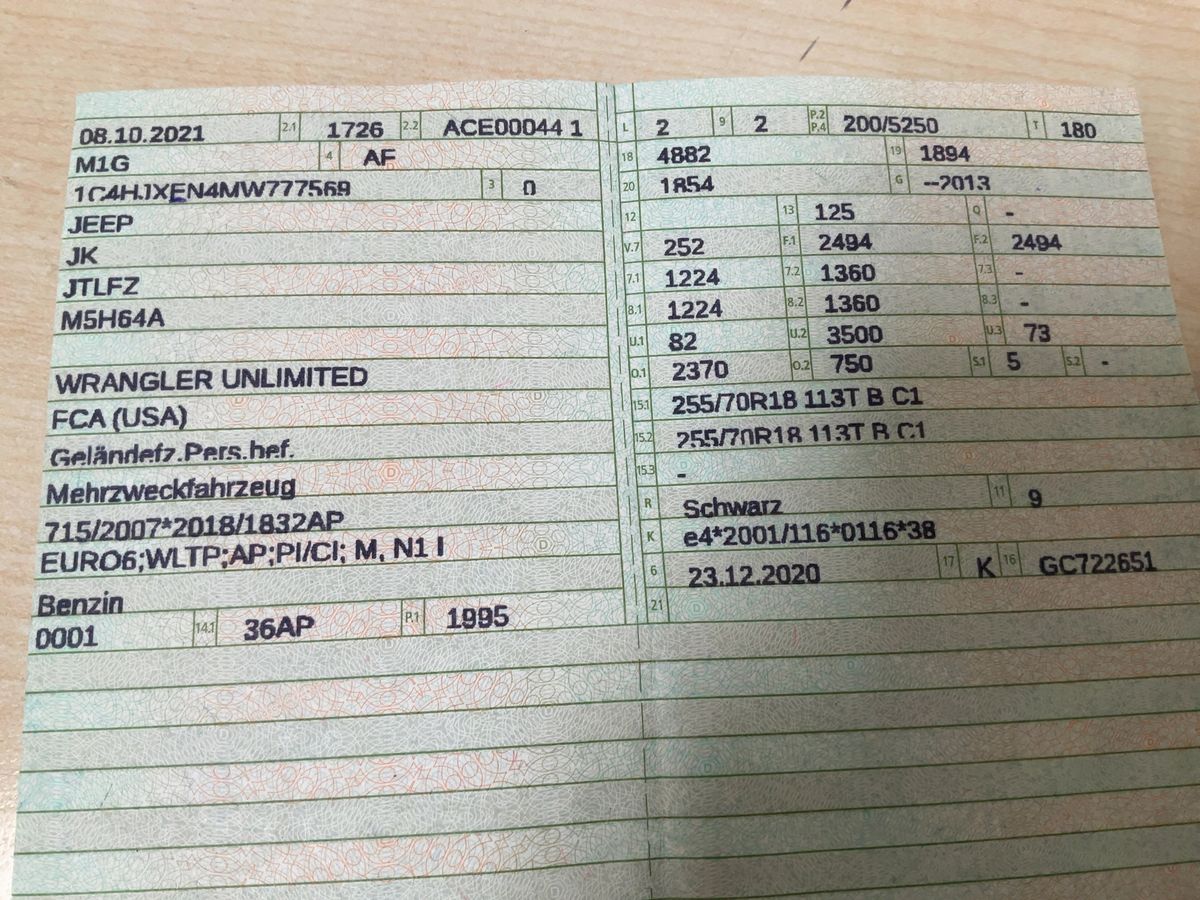 08.10.2021 2.1 1726 2.2 ACE00044 1
M1G 4 AF
1C4HJXEN4MW777569 3 0
JEEP
JK
JTLFZ
M5H64A
WRANGLER UNLIMITED
FCA (USA)
Geländefz.Pers.bef.
Mehrzweckfahrzeug
715/2007*2018/1832AP
EURO6;WLTP;AP;PI/CI; M, N1 I
Benzin
0001 14.1 36AP P.1 1995
L 2 9 2 P.2 P.4 200/5250 T 180
18 4882 19 1894
20 1854 G --2013
12 13 125 Q -
V.7 252 F.1 2494 F.2 2494
7.1 1224 7.2 1360 7.3 -
8.1 1224 8.2 1360 8.3 -
U.1 82 U.2 3500 U.3 73
O.1 2370 O.2 750 S.1 5 S.2 -
15.1 255/70R18 113T B C1
15.2 255/70R18 113T B C1
15.3 -
R Schwarz 11 9
K e4*2001/116*0116*38
6 23.12.2020 17 K 16 GC722651
21